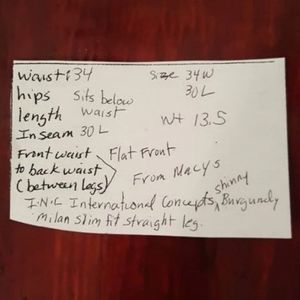 waist: 34 Size 34W
hips Sits below 30L
length waist
Inseam 30L Wt 13.5
Front waist Flat Front
to back waist From Macys
(between legs)
shinny
I.N.C International Concepts, Burgundy
Milan slim fit straight leg.